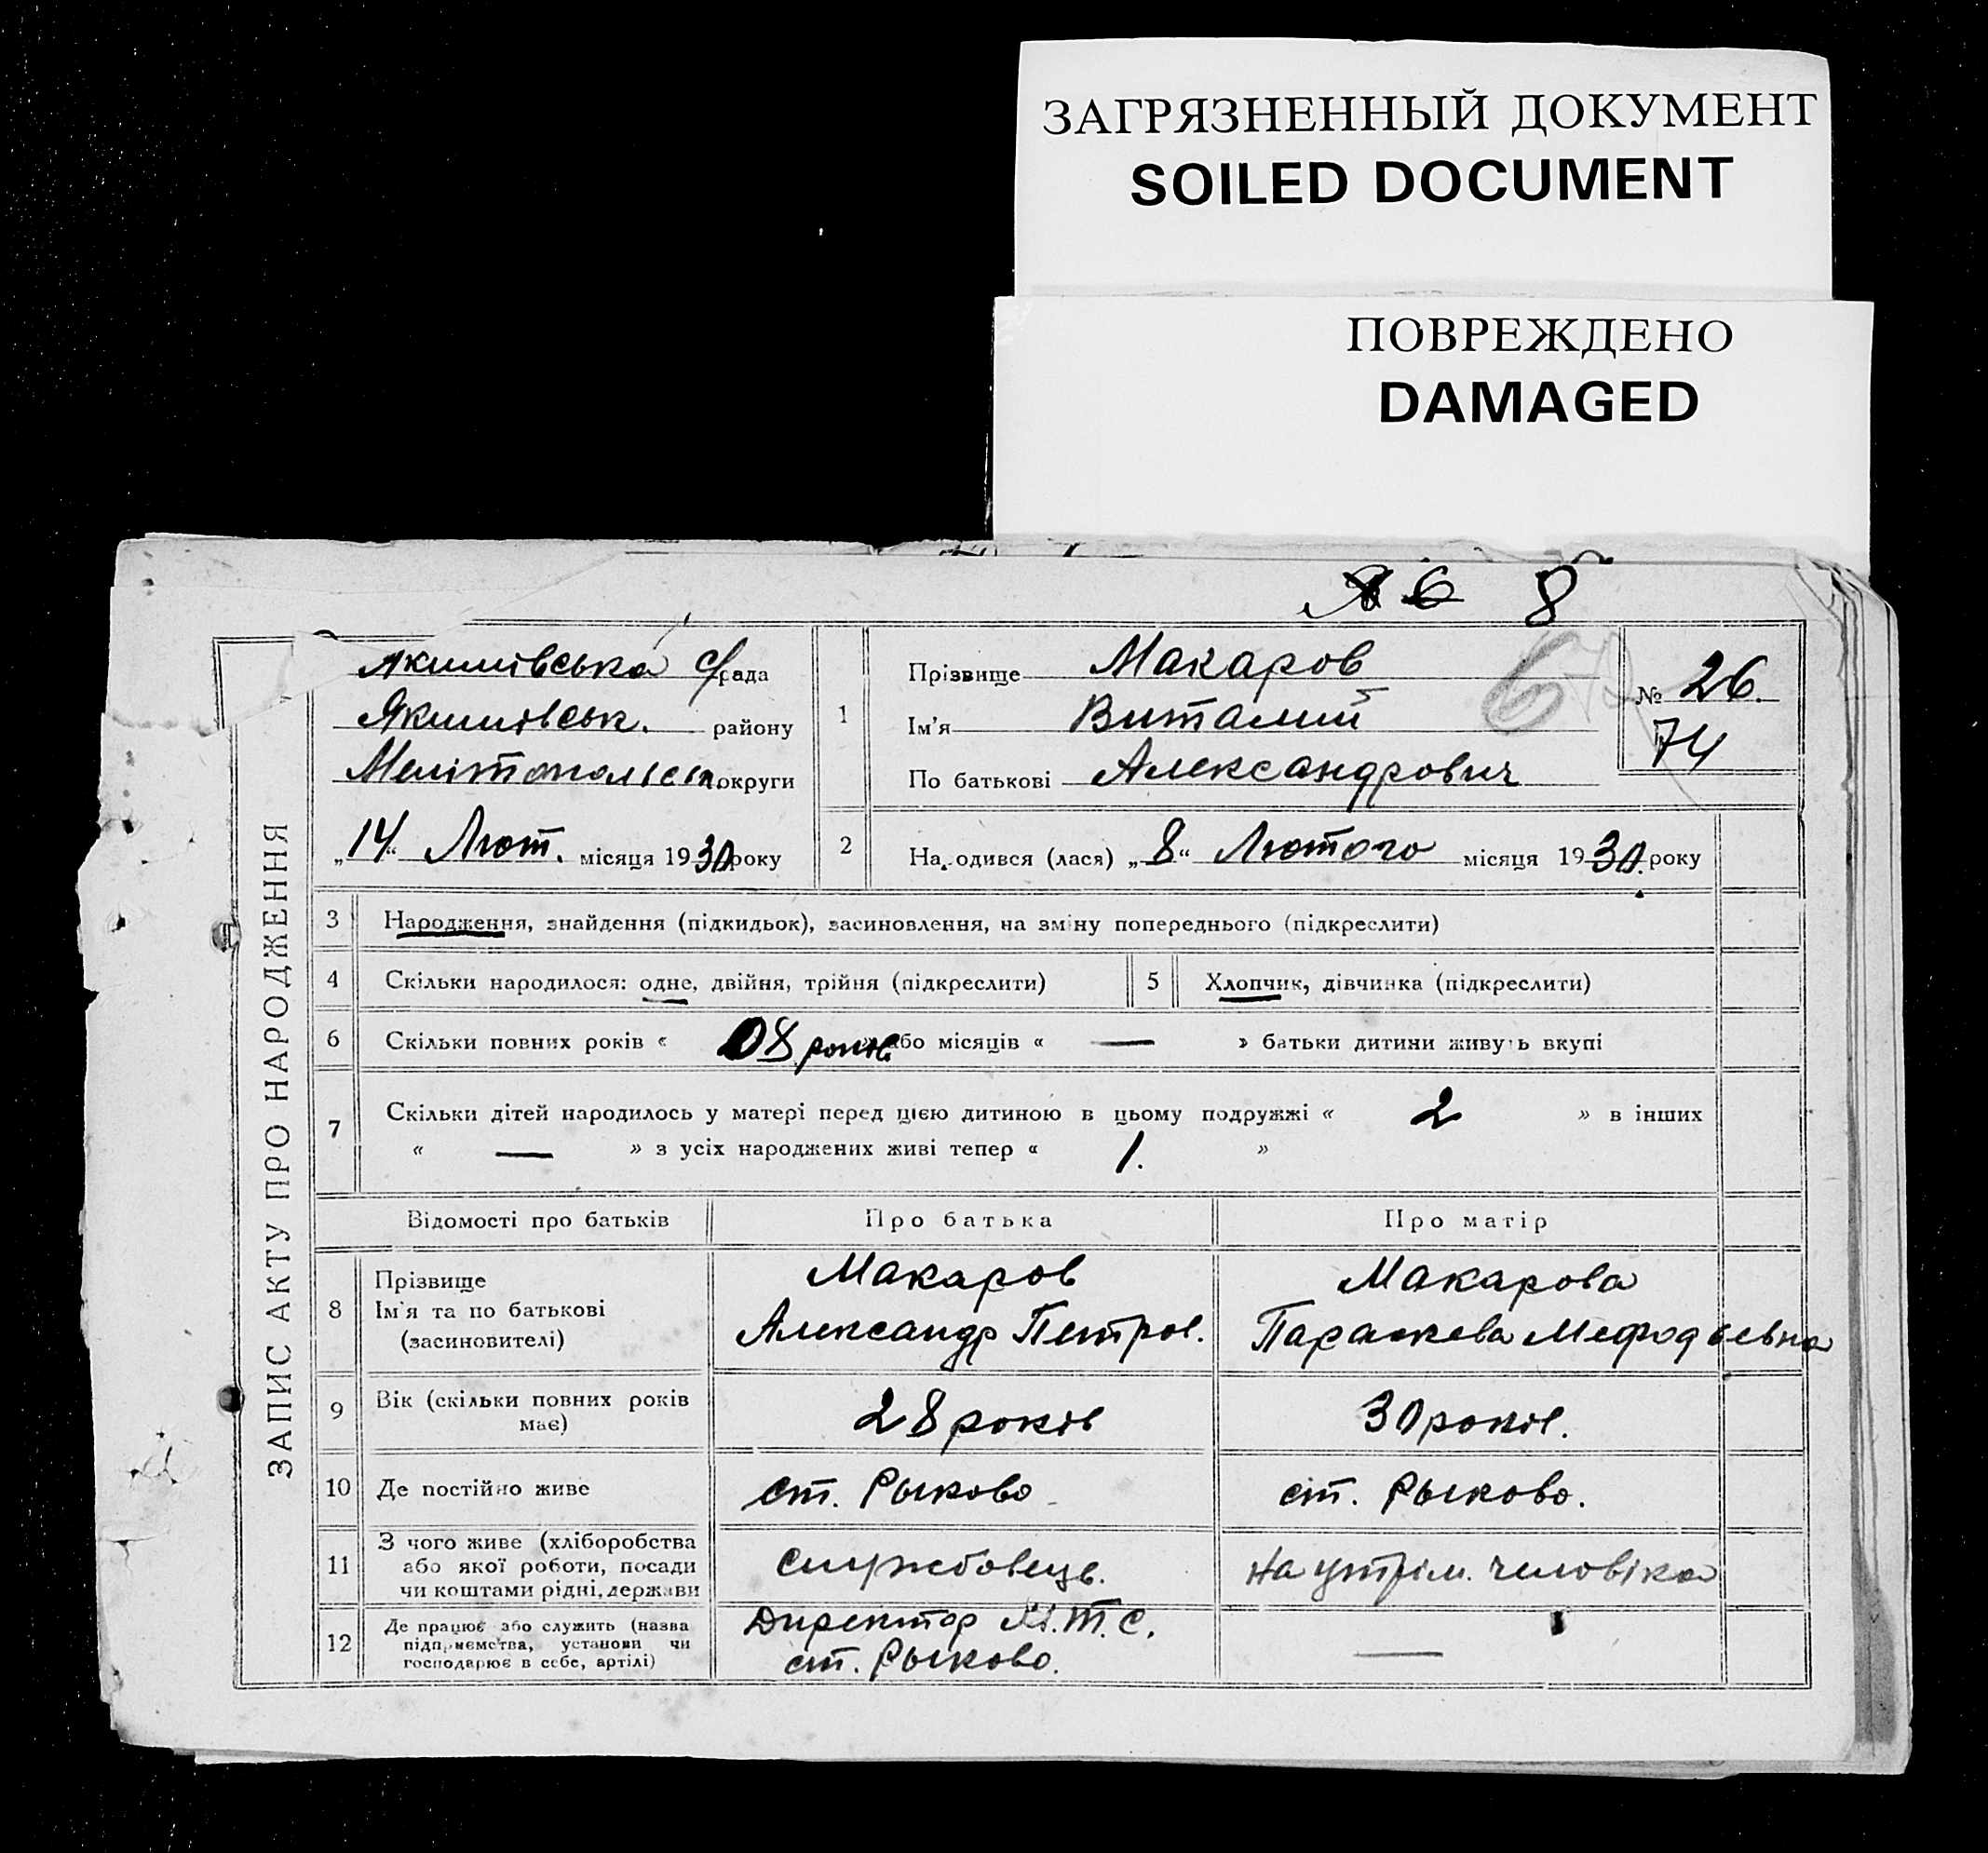 ЗАГРЯЗНЕННЫЙ ДОКУМЕНТ
SOILED DOCUMENT
ПОВРЕЖДЕНО
DAMAGED
6 8
ЗАПИС АКТУ ПРО НАРОДЖЕННЯ
Якимівська с/рада
Якимівськ. району
Мелітопольськ. округи
„14“ Лют. місяця 1930 року
1
Прізвище Макаров
Ім'я Виталий
По батькові Александрович
№ 26.
74
2 Народився (лася) „8“ Лютого місяця 1930. року
3 Народження, знайдення (підкидьок), засиновлення, на зміну попереднього (підкреслити)
4 Скільки народилося: одне, двійня, трійня (підкреслити) 5 Хлопчик, дівчинка (підкреслити)
6 Скільки повних років « 08 років » або місяців « — » батьки дитини живуть вкупі
7 Скільки дітей народилось у матері перед цією дитиною в цьому подружжі « 2 » в інших
« — » з усіх народжених живі тепер « 1. »
Відомості про батьків Про батька Про матір
8 Прізвище
Ім'я та по батькові
(засиновителі)
Макаров
Александр Петров.
Макарова
Параскева Мефодьевна
9 Вік (скільки повних років
має)
28 років
30 років.
10 Де постійно живе ст. Рыково ст. Рыково.
11 З чого живе (хліборобства
або якої роботи, посади
чи коштами рідні, держави
службовець.
на утрім. человіка
12 Де працює або служить (назва
підприємства, установи чи
господарює в себе, артілі)
Директор М.Т.С.
ст. Рыково.
—